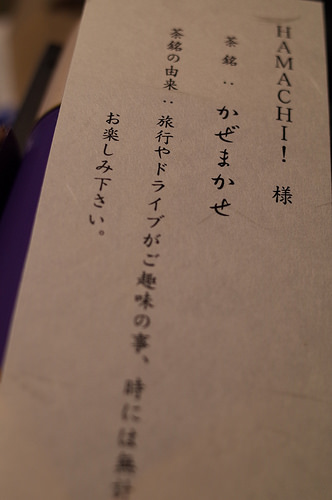 HAMACHI! 様
茶銘：かぜまかせ
茶銘の由来：旅行やドライブがご趣味の事、時には無計
お楽しみ下さい。